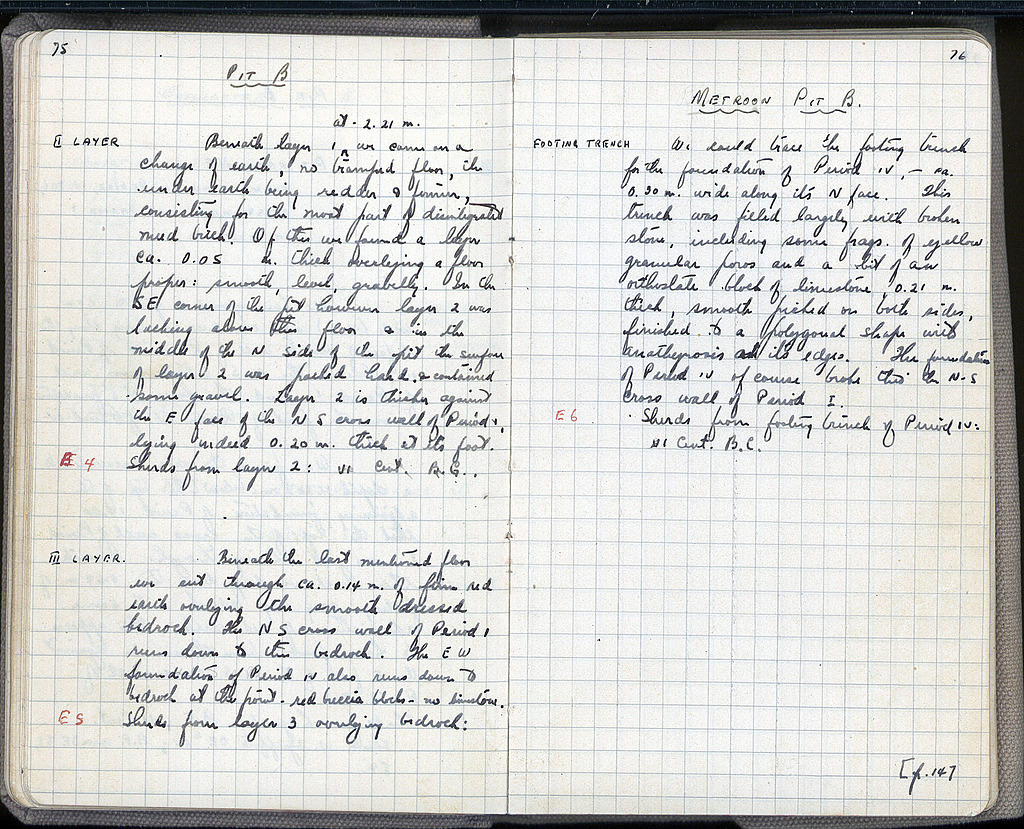 75
PIT B
at - 2.21 m.
II LAYER Beneath layer 1 we came on a
change of earth, no tramped floor, the
under earth being redder & firmer,
consisting for the most part of disintegrated
mud brick. Of this we found a layer
ca. 0.05 m. thick overlying a floor
proper: smooth, level, gravelly. In the
SE corner of the pit however layer 2 was
lacking above this floor & in the
middle of the N side of the pit the surface
of layer 2 was packed hard & contained
some gravel. Layer 2 is thicker against
the E face of the N S cross wall of Period I,
lying indeed 0.20 m. thick at its foot.
E 4 Sherds from layer 2: VI Cent. B.C.
III LAYER. Beneath the last mentioned floor
we cut through ca. 0.14 m. of firm red
earth overlying the smooth dressed
bedrock. The N S cross wall of Period I
runs down to this bedrock. The E W
foundation of Period IV also runs down to
bedrock at the point - red breccia blocks - no limestone.
E 5 Sherds from layer 3 overlying bedrock:
76
METROON PIT B.
FOOTING TRENCH We could trace the footing trench
for the foundation of Period IV, - ca.
0.30 m. wide along its N face. This
trench was filled largely with broken
stone, including some frags. of yellow
granular poros and a bit of an
orthostate block of limestone, 0.21 m.
thick, smooth picked on both sides,
finished to a polygonal shape with
anathyrosis at its edges. The foundation
of Period IV of course broke thro the N-S
cross wall of Period I.
E 6 Sherds from footing trench of Period IV:
VI Cent. B.C.
[p. 147